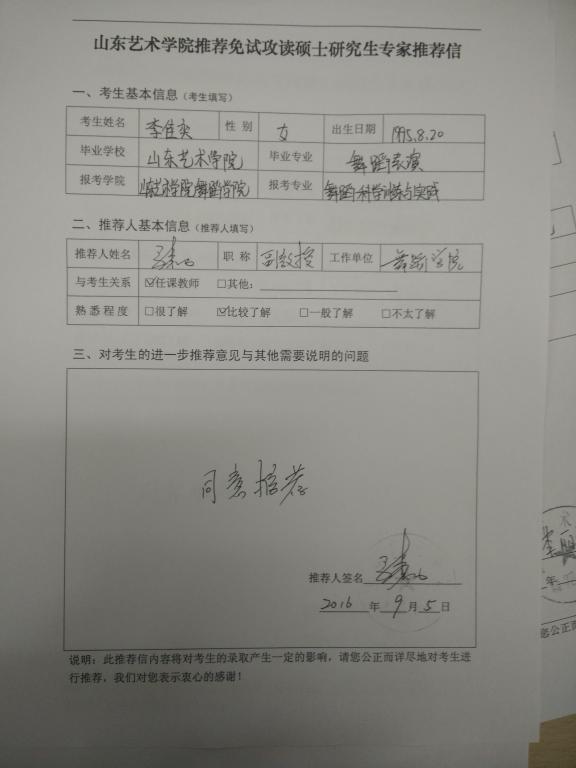 山东艺术学院推荐免试攻读硕士研究生专家推荐信
一、考生基本信息（考生填写）
考生姓名 李佳奕 性 别 女 出生日期 1995.8.20
毕业学校 山东艺术学院 毕业专业 舞蹈表演
报考学院 山东艺术学院舞蹈学院 报考专业 舞蹈科学训练与实践
二、推荐人基本信息（推荐人填写）
推荐人姓名 职 称 副教授 工作单位 舞蹈学院
与考生关系 ☑任课教师 □其他：
熟悉程度 □很了解 ☑比较了解 □一般了解 □不太了解
三、对考生的进一步推荐意见与其他需要说明的问题
同意推荐
推荐人签名
2016 年 9 月 5 日
说明：此推荐信内容将对考生的录取产生一定的影响，请您公正而详尽地对考生进
行推荐，我们对您表示衷心的感谢！
年
您公正而